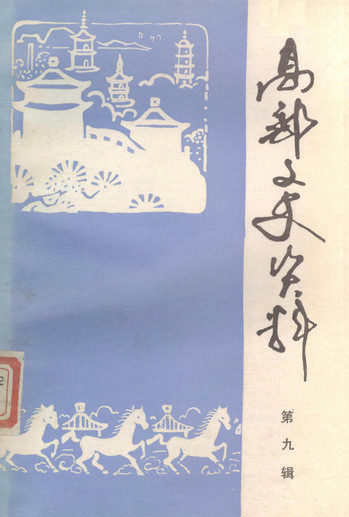 高郵文史资料
第九辑